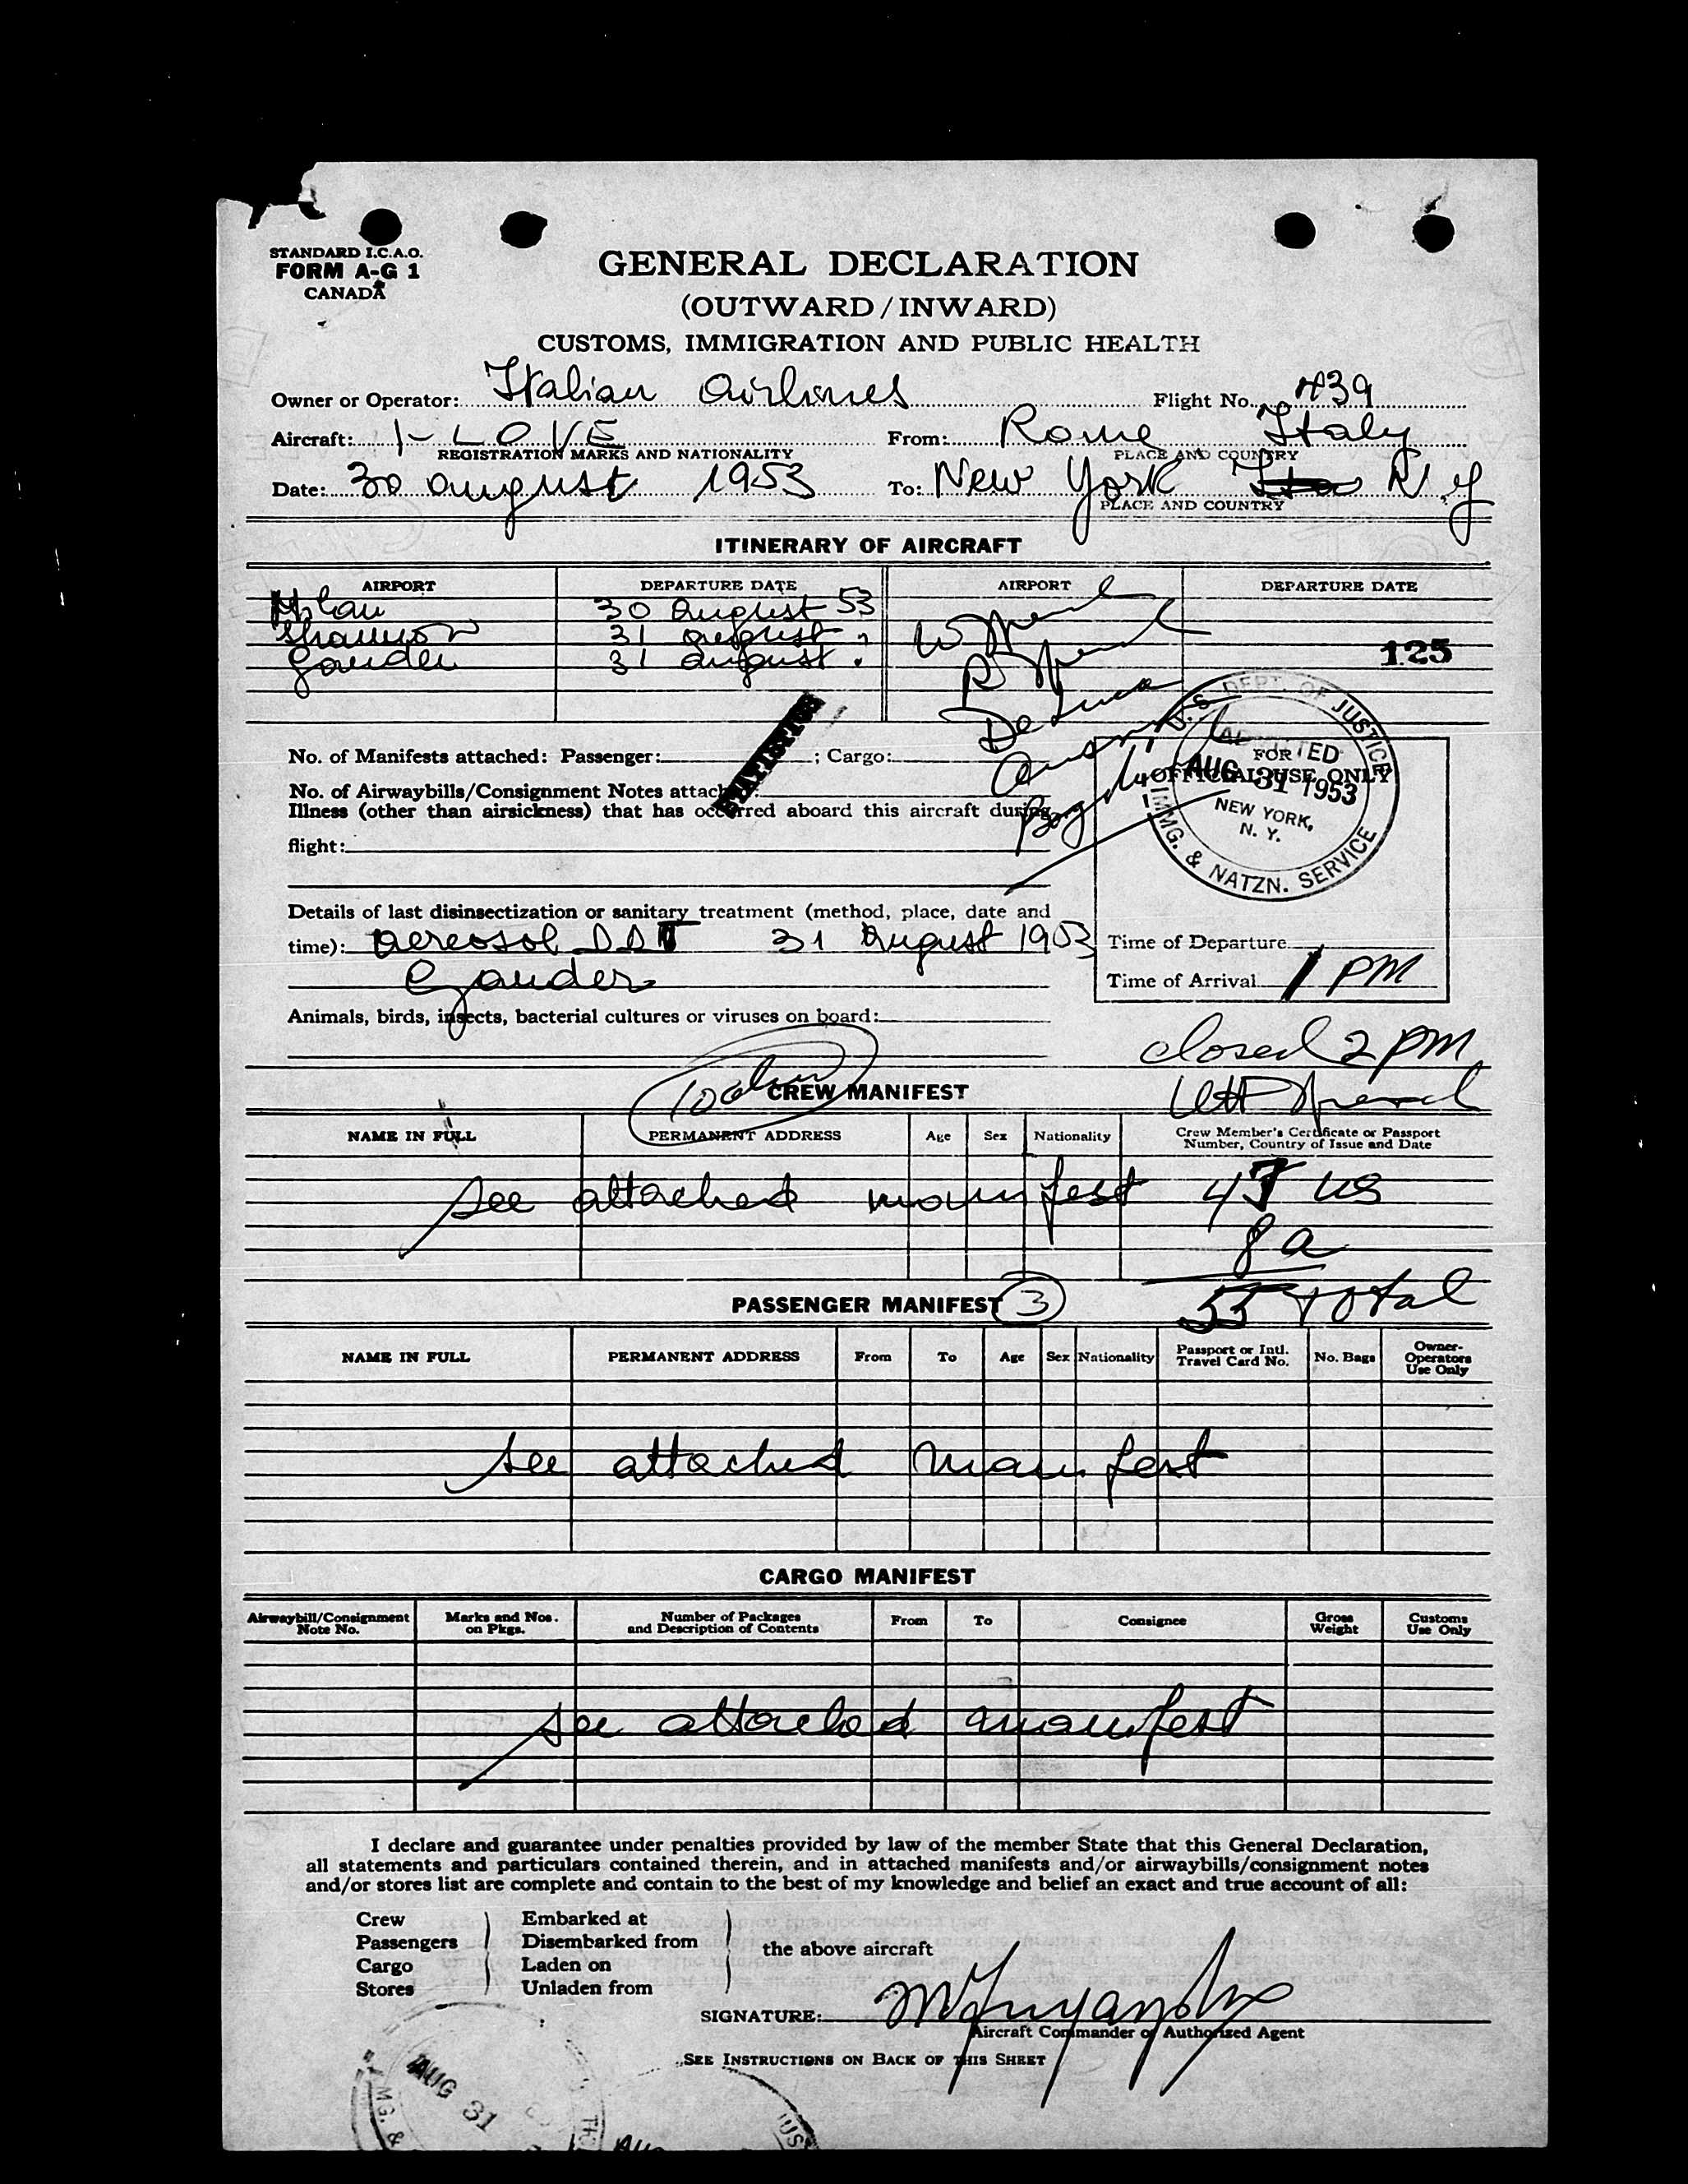 STANDARD I.C.A.O.
FORM A-G 1
CANADA
GENERAL DECLARATION
(OUTWARD/INWARD)
CUSTOMS, IMMIGRATION AND PUBLIC HEALTH
Owner or Operator: Italian Airlines Flight No. 439
Aircraft: I-LOVE From: Rome Italy
REGISTRATION MARKS AND NATIONALITY PLACE AND COUNTRY
Date: 30 August 1953 To: New York N.Y
PLACE AND COUNTRY
ITINERARY OF AIRCRAFT
AIRPORT DEPARTURE DATE AIRPORT DEPARTURE DATE
Milan 30 August 53
Shannon 31 August "
Gander 31 August "
125
STATISTICS
No. of Manifests attached: Passenger: ; Cargo:
No. of Airwaybills/Consignment Notes attached:
Illness (other than airsickness) that has occurred aboard this aircraft during
flight:
U.S. DEPT. OF JUSTICE
ADMITTED
FOR
OFFICIAL USE ONLY
AUG 31 1953
NEW YORK,
N. Y.
IMMG. & NATZN. SERVICE
Details of last disinsectization or sanitary treatment (method, place, date and
time): Aereosol DDT 31 August 1953
Gander
Time of Departure
Time of Arrival 1 PM
Animals, birds, insects, bacterial cultures or viruses on board:
closed 2 PM
CREW MANIFEST
NAME IN FULL PERMANENT ADDRESS Age Sex Nationality Crew Member's Certificate or Passport
Number, Country of Issue and Date
see attached manifest 47 US
8 a
55 total
PASSENGER MANIFEST 3
NAME IN FULL PERMANENT ADDRESS From To Age Sex Nationality Passport or Intl. Travel Card No. No. Bags Owner-Operators Use Only
see attached manifest
CARGO MANIFEST
Airwaybill/Consignment Note No. Marks and Nos. on Pkgs. Number of Packages and Description of Contents From To Consignee Gross Weight Customs Use Only
see attached manifest
I declare and guarantee under penalties provided by law of the member State that this General Declaration,
all statements and particulars contained therein, and in attached manifests and/or airwaybills/consignment notes
and/or stores list are complete and contain to the best of my knowledge and belief an exact and true account of all:
Crew Embarked at
Passengers Disembarked from the above aircraft
Cargo Laden on
Stores Unladen from
SIGNATURE:
Aircraft Commander or Authorized Agent
SEE INSTRUCTIONS ON BACK OF THIS SHEET
AUG 31
MG. &